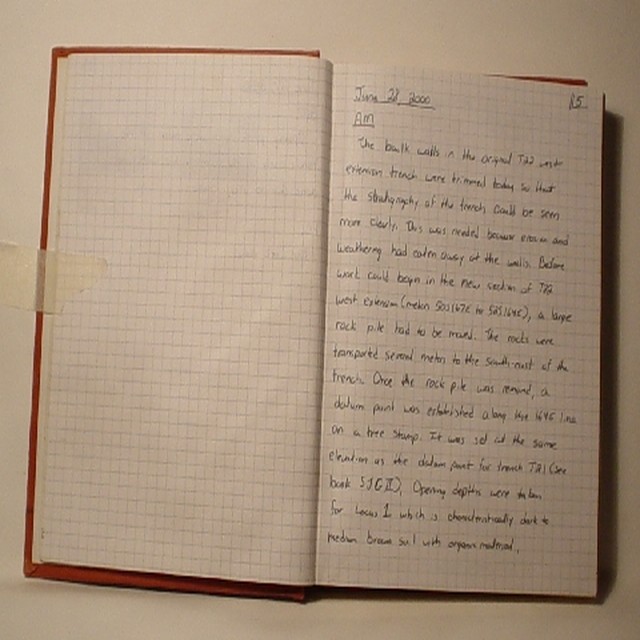 June 28, 2000
15
AM
The baulk walls in the original T22 west
extension trench were trimmed today so that
the stratigraphy of the trench could be seen
more clearly. This was needed because erosion and
weathering had eaten away at the walls. Before
work could begin in the new section of T22
west extension (meters to ), a large
rock pile had to be moved. The rocks were
transported several meters to the south-east of the
trench. Once the rock pile was removed, a
datum point was established along the 164E line
on a tree stump. It was set at the same
elevation as the datum point for trench T21 (see
book SJG II). Opening depths were taken
for Locus 1 which is characteristically dark to
medium brown soil with organic material.